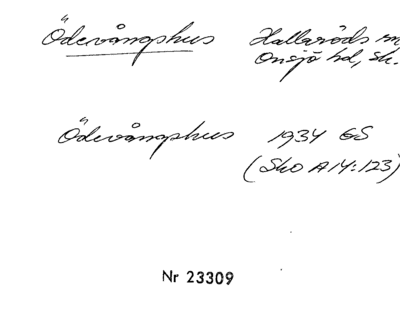 Ödevångshus Hallaröds sn
Onsjö hd, Sk.
Ödevångshus 1934 GS
(Sko A14:123)
Nr 23309